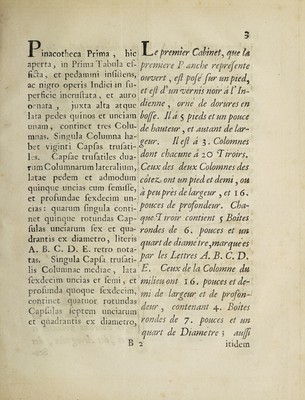 3
Pinacotheca Prima , hic
aperta, in Prima Tabula ef-
ficta, et pedamini insistens,
ac nigro operis Indici in su-
perficie incrustata, et auro
ornata , juxta alta atque
lata pedes quinos et unciam
unam, continet tres Colu-
mnas. Singula Columna ha-
bet viginti Capsas trusati-
les. Capsæ trusatiles dua-
rum Columnarum lateralium,
latae pedem et admodum
quinque uncias cum semisse,
et profundae sexdecim un-
cias: quarum singula conti-
net quinque rotundas Cap-
sulas unciarum sex et qua-
drantis ex diametro, literis
A. B. C. D. E. retro nota-
tas. Singula Capsa trusati-
lis Columnae mediae, lata
sexdecim uncias et semi, et
profunda quoque sexdecim,
continet quatuor rotundas
Capsulas septem unciarum
et quadrantis ex diametro,
Le premier Cabinet, que la
premiere Planche represente
ouvert, est posé sur un pied,
et est d'un vernis noir à l'In-
dienne , orné de dorures en
bosse. Il a 5 pieds et un pouce
de hauteur, et autant de lar-
geur. Il est à 3. Colomnes
dont chacune à 20 Tiroirs.
Ceux des deux Colomnes des
côtez, ont un pied et demi, ou
à peu près de largeur , et 16.
pouces de profondeur. Cha-
que Tiroir contient 5 Boîtes
rondes de 6. pouces et un
quart de diametre, marquees
par les Lettres A. B. C. D.
E. Ceux de la Colomne du
milieu ont 16. pouces et de-
mi de largeur et de profon-
deur , contenant 4. Boîtes
rondes de 7. pouces et un
quart de Diametre ; aussi
B 2
itidem